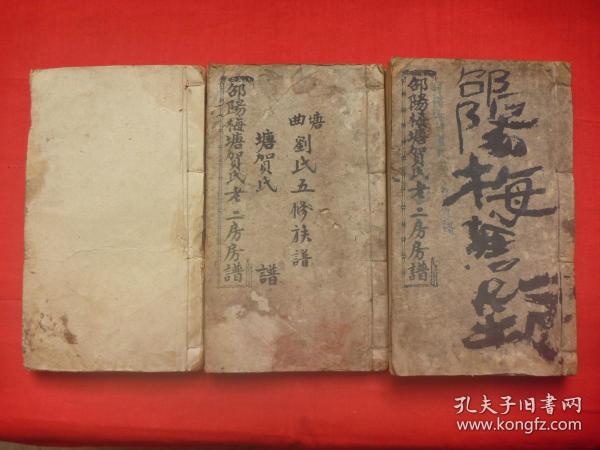 邵陽梅塘賀氏老二房房譜
塘賀氏 譜
塘曲劉氏五修族譜
邵陽梅塘賀氏老二房房譜
邵陽梅
孔夫子旧书网
www.kongfz.com